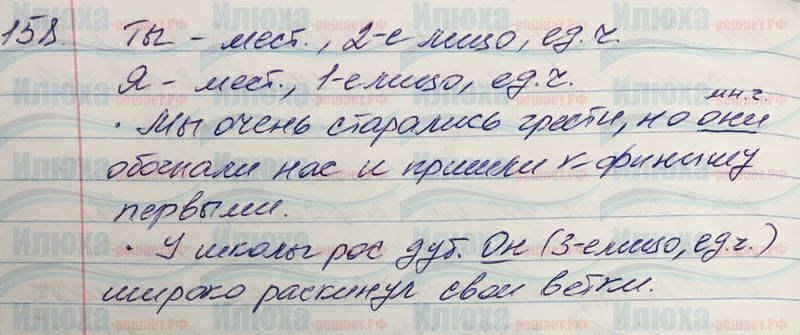 158. Ты - мест., 2-е лицо, ед.ч.
Я - мест., 1-е лицо, ед.ч.
мн.ч.
· Мы очень старались грести, но они
обогнали нас и пришли к финишу
первыми.
· У школы рос дуб. Он (3-е лицо, ед.ч.)
широко раскинул свои ветки.
Илюха
-решает.РФ